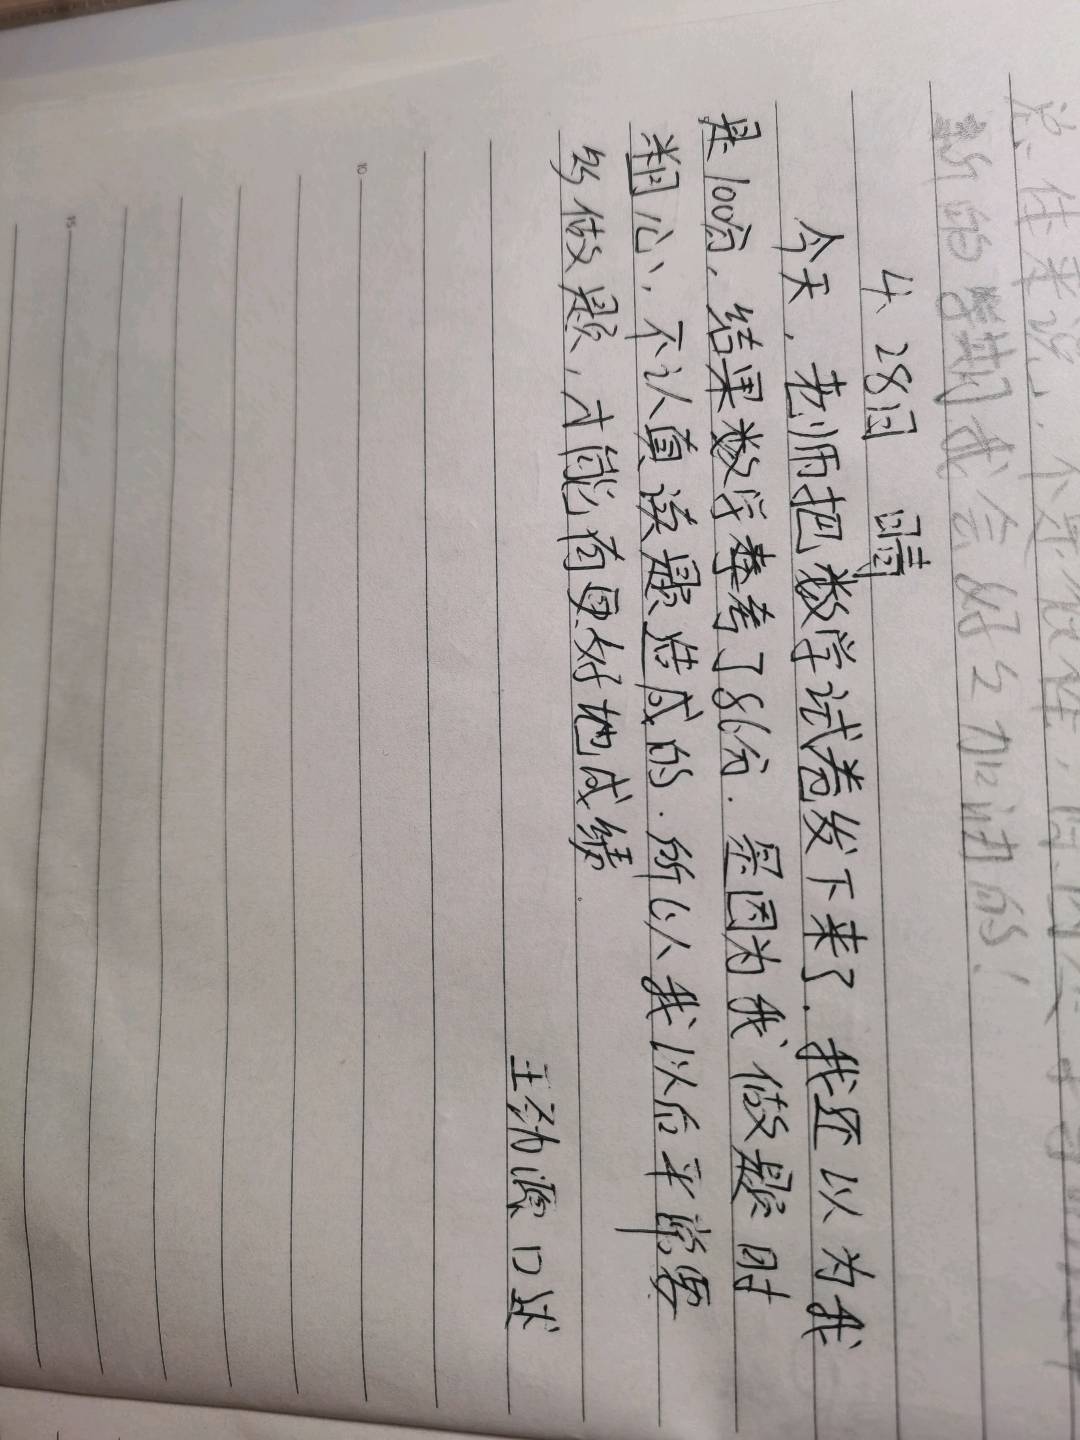 新的学期我会好与加油的！
4、28日 晴
今天，老师把数学试卷发下来了．我还以为我
是100分，结果数学考了86分．是因为我做题时
粗心、不认真读题造成的．所以人我以后平常要
多做题，才能有更好地成绩．
王劲源口述
10
15